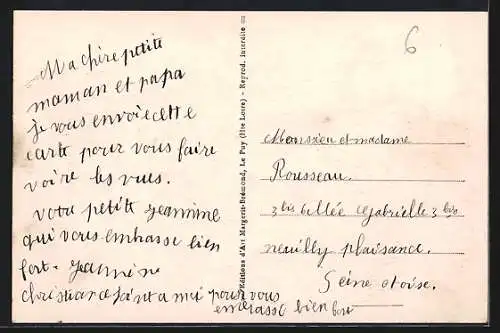 Ma chère petite
maman et papa
je vous envoie cette
carte pour vous faire
voire les vues.
votre petite jeannine
qui vous embrasse bien
fort. Jeannine
Christiane joint a moi pour vous
embrasse bien fort
Editions d'Art Margerit-Brémond, Le Puy (Hte Loire) - Reprod. Interdite
6
Monsieu et madame
Rousseau.
3 bis Allée Gabrielle 3 bis
neuilly plaisance.
Seine et oise.